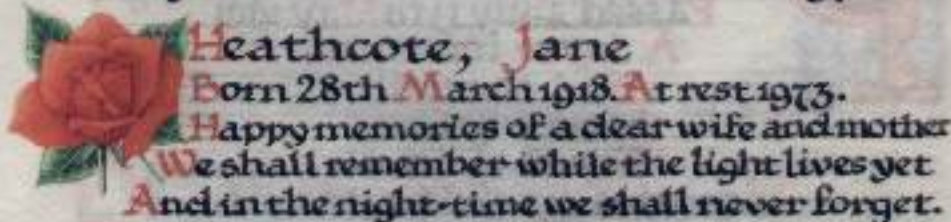 Heathcote, Jane
Born 28th March 1918. At rest 1973.
Happy memories of a dear wife and mother
We shall remember while the light lives yet
And in the night-time we shall never forget.